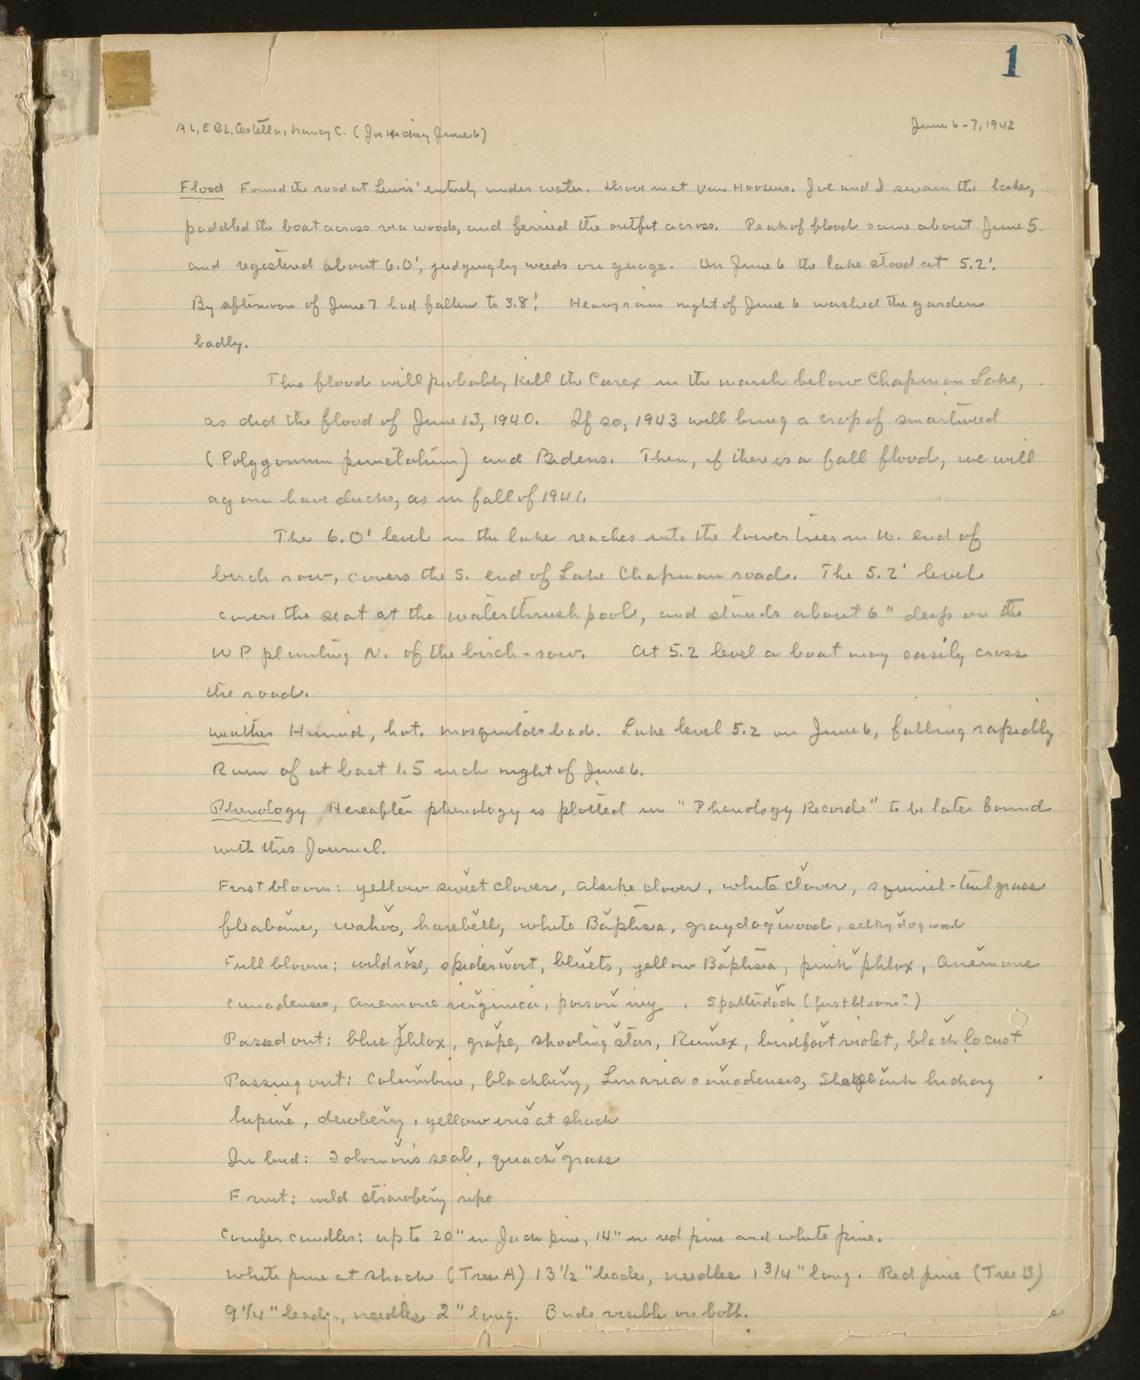 1
AL, EBL, Estella, Nancy C. (Joe Hickey June 6)
June 6-7, 1942
Flood Found the road at Lewis' entirely under water. Drove in at Van Hoosens. Joe and I swam the lake,
paddled the boat across via woods, and ferried the outfit across. Peak of flood came about June 5
and registered about 6.0', judging by weeds on guage. On June 6 the lake stood at 5.2'.
By afternoon of June 7 had fallen to 3.8'. Heavy rain night of June 6 washed the garden
badly.
This flood will probably kill the Carex in the marsh below Chapman Lake,
as did the flood of June 13, 1940. If so, 1943 will bring a crop of smartweed
(Polygonum punctatum) and Bidens. Then, if there is a fall flood, we will
again have ducks, as in fall of 1941.
The 6.0' level in the lake reaches into the lower trees in W. end of
birch row, covers the S. end of Lake Chapman road. The 5.2' level
covers the seat at the waterthrush pool, and stands about 6" deep on the
WP planting N. of the birch-row. At 5.2 level a boat may easily cross
the road.
Weather Humid, hot. mosquitoes bad. Lake level 5.2 on June 6, falling rapidly
Rain of at least 1.5 inch night of June 6.
Phenology Hereafter phenology is plotted in "Phenology Records" to be later bound
with this Journal.
First bloom: yellow sweet clover, alsike clover, white clover, squirrel-tail grass
fleabane, wahoo, harebell, white Baptisia, gray dogwood, silky dogwood
Full bloom: wild rose, spiderwort, bluets, yellow Baptisia, pink phlox, Anemone
canadensis, Anemone virginica, poison ivy. Spatterdock (first bloom?)
Passed out: blue phlox, grape, shooting star, Rumex, birdfoot violet, black locust
Passing out: Columbine, blackberry, Linaria canadensis, Shagbark hickory
lupine, dewberry, yellow iris at shack
In bud: Solomon's seal, quack grass
Fruit: wild strawberry ripe
Conifer candles: up to 20" in Jack pine, 14" in red pine and white pine.
White pine at shack (Tree A) 13 1/2" leader, needles 1 3/4" long. Red pine (Tree B)
9 1/4" leader, needles 2" long. Buds visible on both.